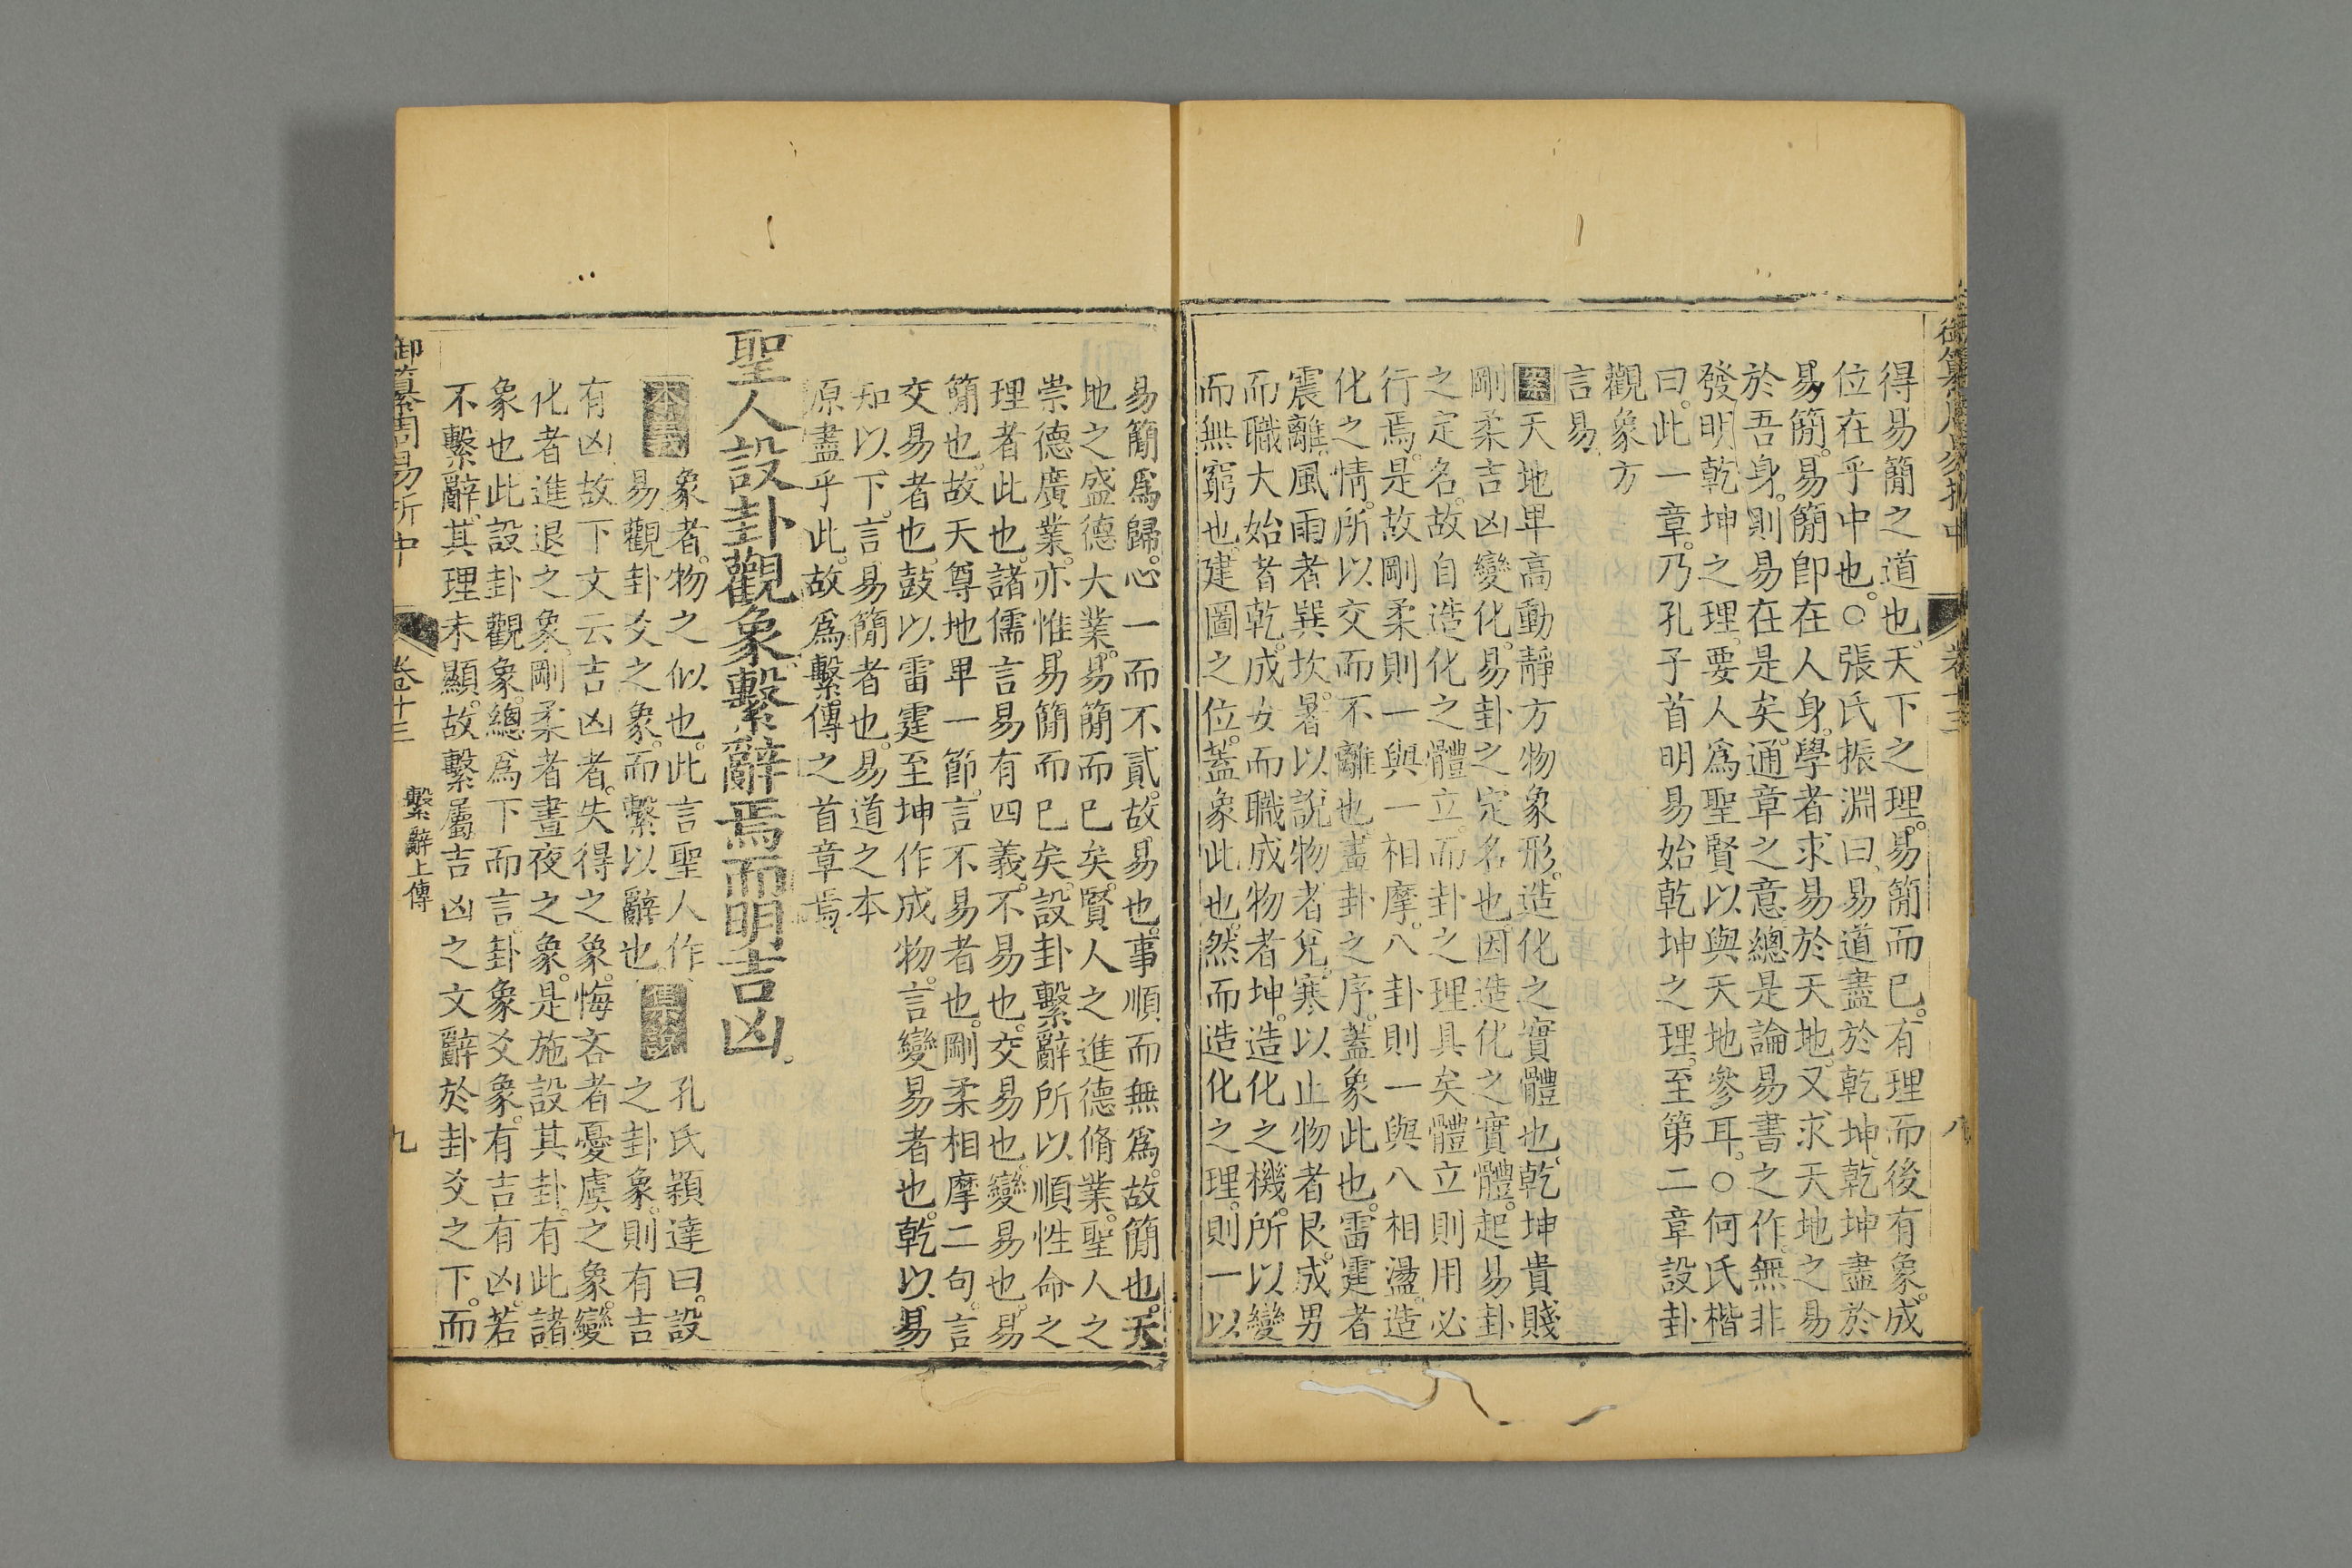 御纂周易折中
卷十三
八
得易簡之道也。天下之理。易簡而已。有理而後有象。成
位在乎中也。○張氏振淵曰。易道盡於乾坤。乾坤盡於
易簡。易簡卽在人身。學者求易於天地。又求天地之易
於吾身。則易在是矣。通章之意。總是論易書之作。無非
發明乾坤之理。要人爲聖賢以與天地參耳。○何氏楷
曰。此一章。乃孔子首明易始乾坤之理。至第二章設卦
觀象方
言易
案天地卑高動靜方物象形。造化之實體也。乾坤貴賤
剛柔吉凶變化。易卦之定名也。因造化之實體。起易卦
之定名。故自造化之體立。而卦之理具矣。體立則用必
行焉。是故剛柔則一與一相摩。八卦則一與八相盪。造
化之情。所以交而不離也。畫卦之序。蓋象此也。雷霆者
震離。風雨者巽坎。暑以說物者兌。寒以止物者艮。成男
而職大始者乾。成女而職成物者坤。造化之機。所以變
而無窮也。建圖之位。蓋象此也。然而造化之理。則一以
易簡爲歸。心一而不貳。故易也。事順而無爲。故簡也。天
地之盛德大業。易簡而已矣。賢人之進德脩業。聖人之
崇德廣業。亦惟易簡而已矣。設卦繫辭所以順性命之
理者此也。諸儒言易有四義。不易也。交易也。變易也。易
簡也。故天尊地卑一節。言不易者也。剛柔相摩二句。言
交易者也。鼓以雷霆至坤作成物。言變易者也。乾以易
知以下。言易簡者也。易道之本
原盡乎此。故爲繫傳之首章焉。
聖人設卦觀象繫辭焉而明吉凶。
本義
象者。物之似也。此言聖人作
易觀卦爻之象。而繫以辭也。
集說
孔氏穎達曰。設
之卦象。則有吉
有凶。故下文云吉凶者。失得之象。悔吝者憂虞之象。變
化者進退之象。剛柔者晝夜之象。是施設其卦。有此諸
象也。此設卦觀象。總爲下而言。卦象爻象。有吉有凶。若
不繫辭。其理未顯。故繫屬吉凶之文辭於卦爻之下。而
御纂周易折中
卷十三
繫辭上傳
九